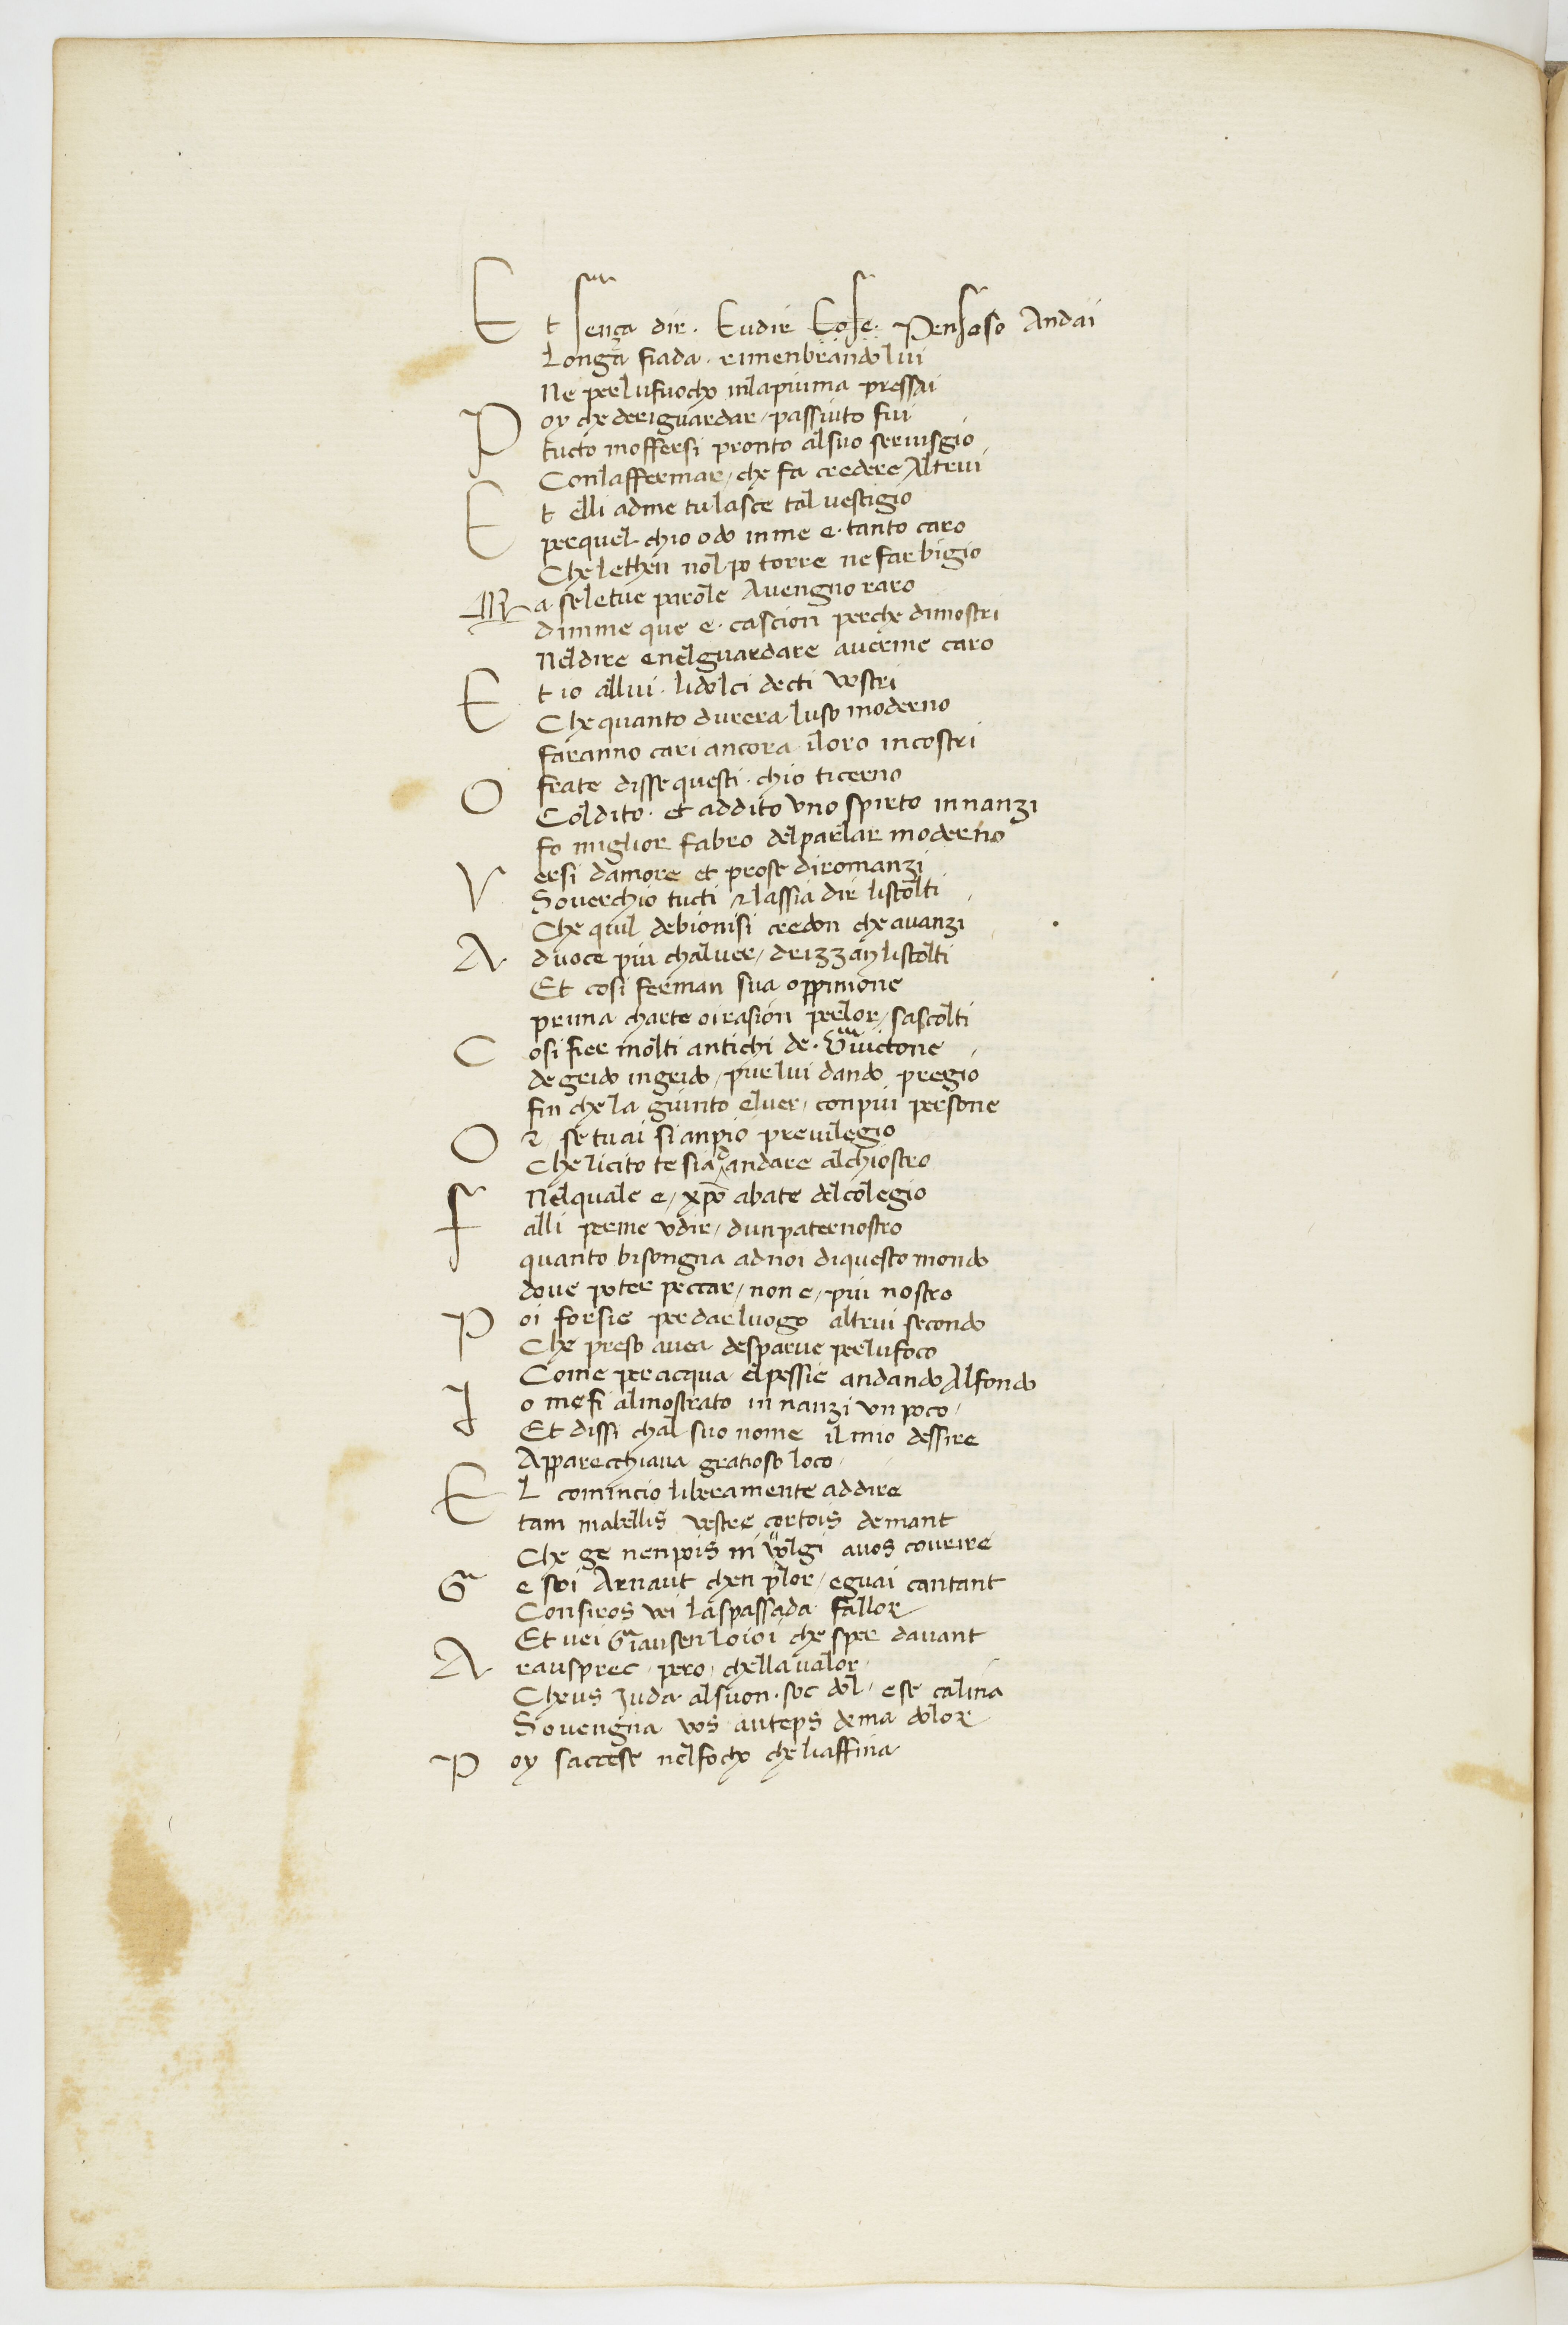 Et senza dir. Eudir Cose. Pensoso Andai
Longa fiada. rimenbrandolui
Ne perlufuocho inlapiuma pressai
Poy che deriguardar / passiuto fui
tucto moffersi pronto alsuo seruisgio
Conlaffermar / che fa credere Altrui
Et elli adme tulasce tal uestigio
perquel chio odo inme e. tanto caro
Che letheu nol po torre ne far bigio
Ma seletue parole Auengno raro
dimme que e. cascion perche dimostri
Neldire enelguardare auerme caro
Et io allui. lidolci decti vostri
Che quanto durera luso moderno
faranno cari ancora iloro incostri
O frate disse questi. chio ticerno
Coldito. et addito uno spirto innanzi
fo miglior fabro delparlar moderno
Versi damore et prose diromanzi
Souerchio tucti & lassia dir listolti
Che quil debionisi credon che auanzi
Aduoce piu chaluer / drizzan listolti
Et cosi ferman sua oppinione
pruna charte oirasion perlor / sascolti
Cosi fier molti antichi de. Guictone
de grido ingrido / purlui dando pregio
fin che la giunto eluer / conpiu persone
Or se tuai si anpio preuilegio
Che licito te sia dandare alchiostro
Nelquale e / xpo abate delcolegio
falli perme udir / dunpaternostro
quanto bisongna adnoi diquesto mondo
doue poter peccar / non e / piu nostro
Poi forsie perdarluogo altrui secondo
Che preso auea desparue perlufoco
Come per acqua elpessie andando Alfondo
Io mefi almostrato innanzi un poco /
Et dissi chal suo nome il mio dessire
Apparecchiaua gratioso loco.
El comincio liberamente addire
tam mabellis vestre cortois demant
Che ge nenpois ni volgi auos courire
Ge soi Arnaut chen plor / eguai cantant
Consiros vei laspassada fallor
Et uei Giausen loioi che sper dauant
Arausprec. pero. chella ualor.
Cheus Juda alsuon. soc dol. ese calina
Souengna vos auteps dema dolor
Poy saccese nelfocho cheliaffina